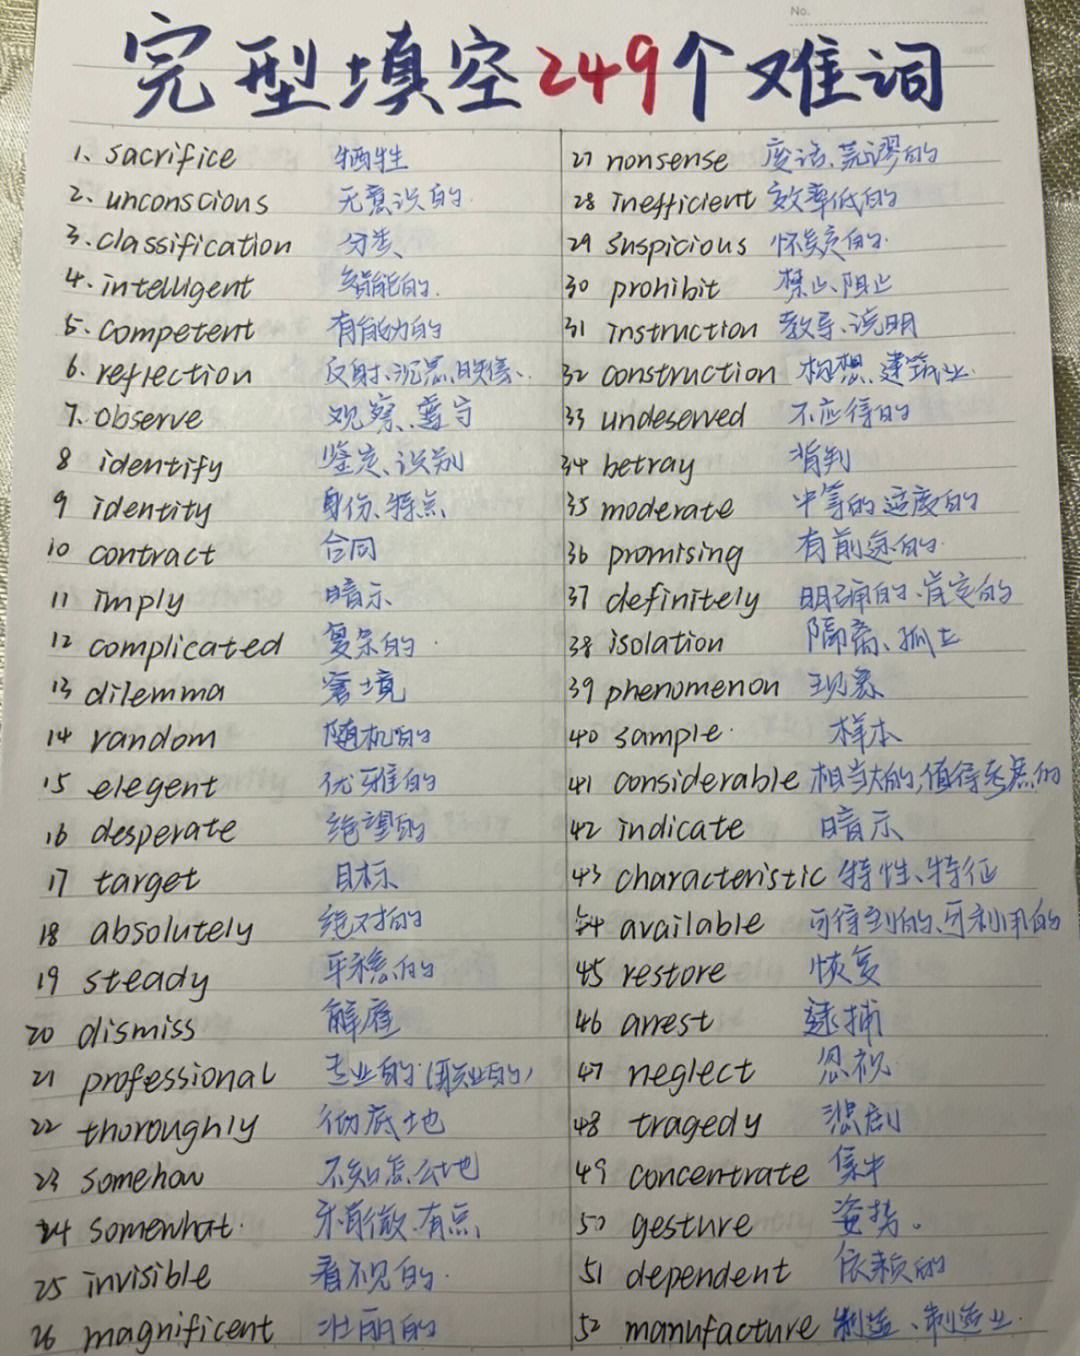 No.
完型填空249个难词
1、sacrifice 牺牲
2、unconscious 无意识的
3、classification 分类
4、intelligent 智能的
5、competent 有能力的
6、reflection 反射、沉思、映像、
7、observe 观察、遵守
8 identify 鉴定、识别
9 identity 身份、特点
10 contract 合同
11 imply 暗示
12 complicated 复杂的
13 dilemma 窘境
14 random 随机的
15 elegent 优雅的
16 desperate 绝望的
17 target 目标
18 absolutely 绝对的
19 steady 平稳的
20 dismiss 解雇
21 professional 专业的(职业的)
22 thoroughly 彻底地
23 somehow 不知怎么地
24 somewhat 稍微、有点
25 invisible 看不见的
26 magnificent 壮丽的
27 nonsense 废话、荒谬的
28 inefficient 效率低的
29 suspicious 怀疑的
30 prohibit 禁止、阻止
31 instruction 教导、说明
32 construction 构想、建筑业
33 undeserved 不应得的
34 betray 背判
35 moderate 中等的 适度的
36 promising 有前途的
37 definitely 明确的、肯定的
38 isolation 隔离、孤立
39 phenomenon 现象
40 sample 样本
41 considerable 相当大的,值得考虑的
42 indicate 暗示
43 characteristic 特性、特征
44 available 可得到的、可利用的
45 restore 恢复
46 arrest 逮捕
47 neglect 忽视
48 tragedy 悲剧
49 concentrate 集中
50 gesture 姿势。
51 dependent 依赖的
52 manufacture 制造、制造业